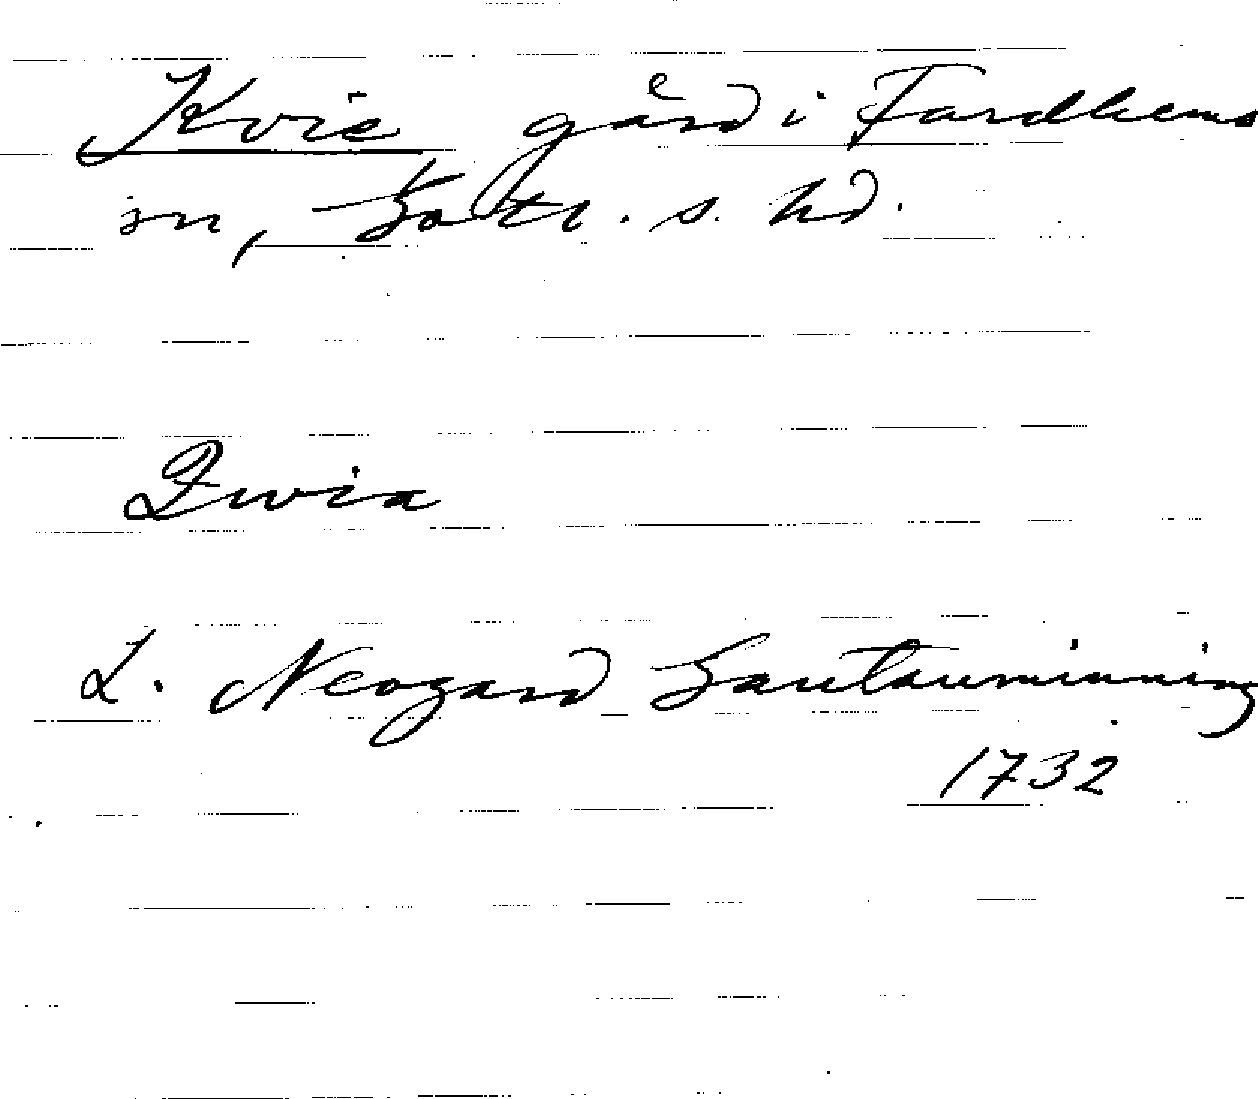 Kvie gård i Fardhems
sn, Gotl. s. hd.
Qvia
L. Neogard Gautauminning
1732